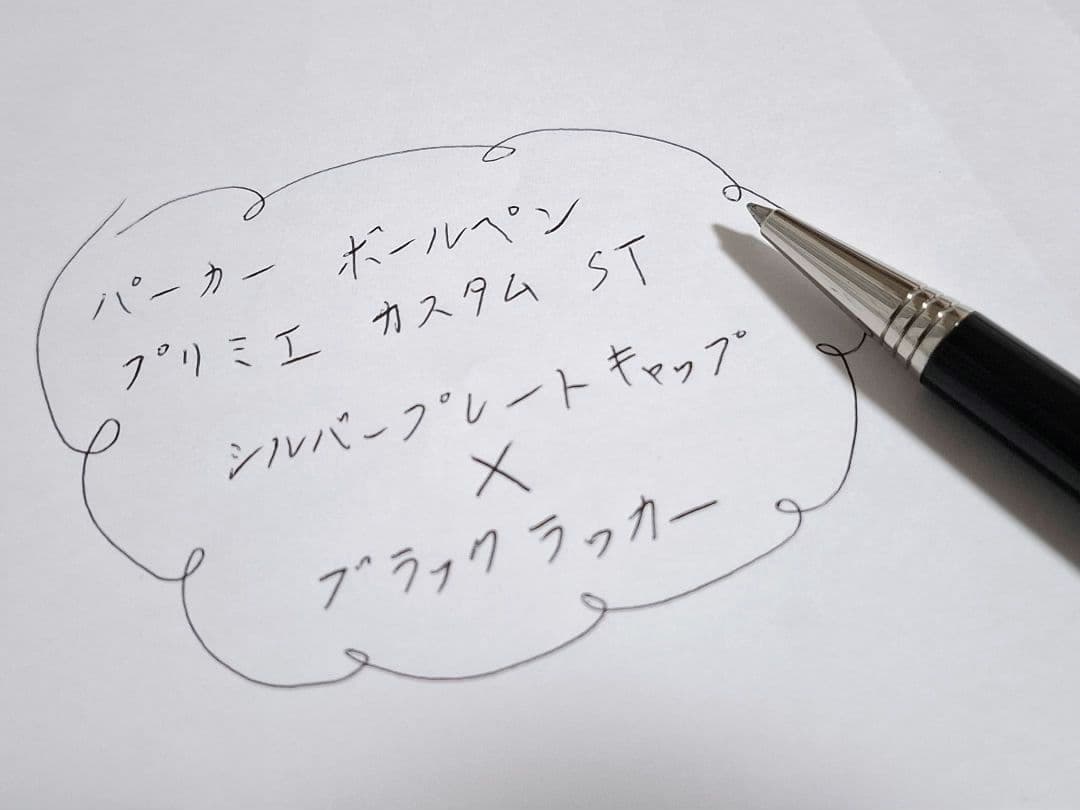 パーカー ボールペン
プリミエ カスタム ST
シルバープレートキャップ
×
ブラックラッカー